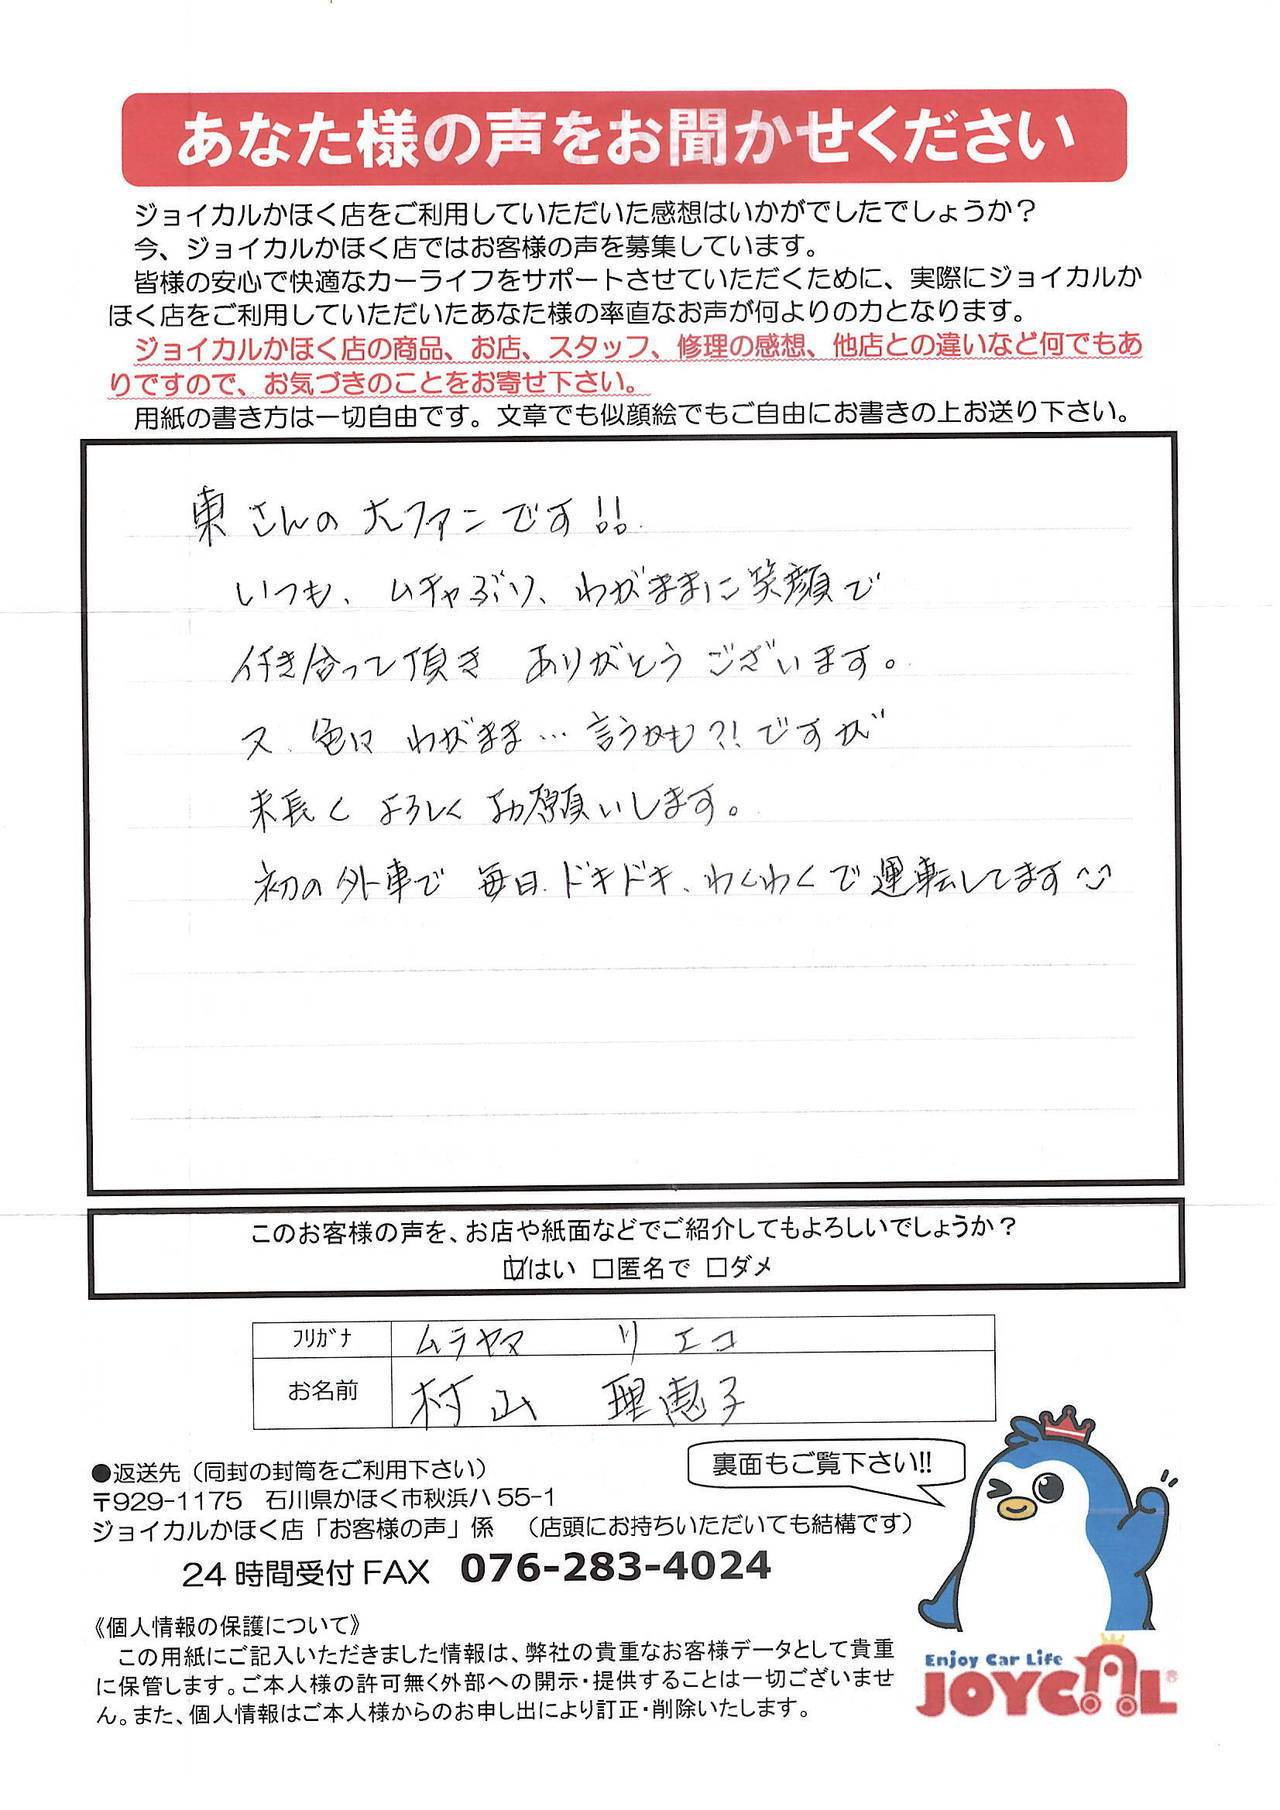 あなた様の声をお聞かせください
ジョイカルかほく店をご利用していただいた感想はいかがでしたでしょうか?
今、ジョイカルかほく店ではお客様の声を募集しています。
皆様の安心で快適なカーライフをサポートさせていただくために、実際にジョイカルか
ほく店をご利用していただいたあなた様の率直なお声が何よりの力となります。
ジョイカルかほく店の商品、お店、スタッフ、修理の感想、他店との違いなど何でもあ
りですので、お気づきのことをお寄せ下さい。
用紙の書き方は一切自由です。文章でも似顔絵でもご自由にお書きの上お送り下さい。
東さんの大ファンです!!
いつも、ムチャぶり、わがままに笑顔で
付き合って頂き ありがとうございます。
又、色々 わがまま…言うかも?!ですが
末長く よろしくお願いします。
初の外車で 毎日、ドキドキ、わくわくで運転してます
このお客様の声を、お店や紙面などでご紹介してもよろしいでしょうか?
☑はい □匿名で □ダメ
フリガナ ムラヤマ リエコ
お名前 村山 理恵子
裏面もご覧下さい!!
●返送先(同封の封筒をご利用下さい)
〒929-1175 石川県かほく市秋浜ハ55-1
ジョイカルかほく店「お客様の声」係 (店頭にお持ちいただいても結構です)
24時間受付FAX 076-283-4024
《個人情報の保護について》
この用紙にご記入いただきました情報は、弊社の貴重なお客様データとして貴重
に保管します。ご本人様の許可無く外部への開示・提供することは一切ございませ
ん。また、個人情報はご本人様からのお申し出により訂正・削除いたします。
Enjoy Car Life
JOYCAL®